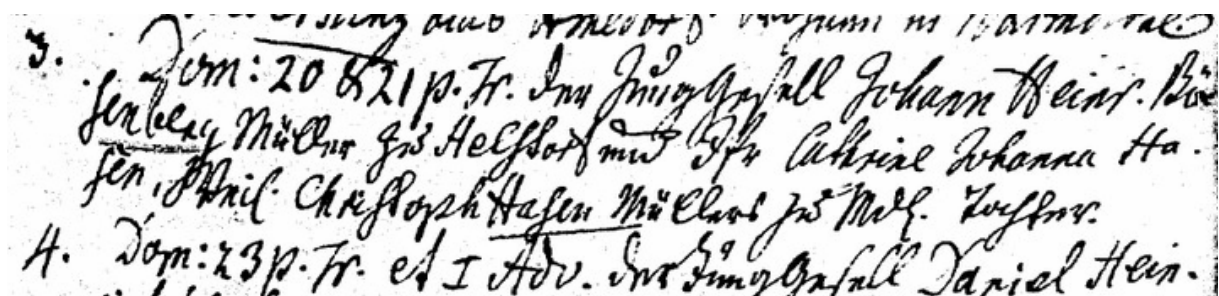 aus
3. Dom: 20 & 21 p. Tr. der Jung Gesell Johann Heinr. Bö-
senberg Müller zu Helstorf und Jfr Cathrine Johanna Ha-
sen, Weil. Christoph Hasen Müllers zu Mdl. Tochter.
4. Dom: 23 p. Tr. et I Adv. der Jung Gesell Daniel Hein-